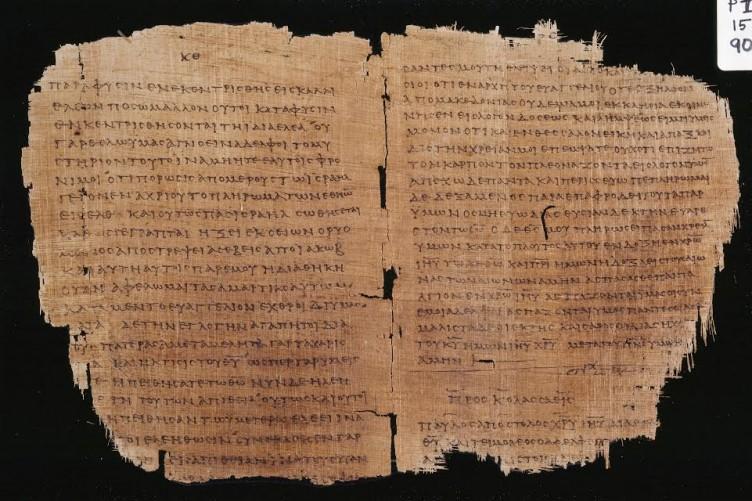 κθ
παρα φυσιν ενεκεντρισθης εις καλλι
ελεον ποσω μαλλον ουτοι κατα φυσιν
ενκεντρισθησονται τη ιδια ελεα ου
γαρ θελω υμας αγνοειν αδελφοι το μυ
στηριον τουτο ινα μη ητε εαυτοις φρο
νιμοι οτι πορωσις απο μερους τω ισραηλ
γεγονεν αχρι ου το πληρωμα των εθνων
εισελθη και ουτως πας ισραηλ σωθησεται
καθως γεγραπται ηξει εκ σειων ο ρυο
μενος αποστρεψει ασεβειας απο ιακωβ
και αυτη αυτοις παρ εμου η διαθηκη
οταν αφελωμαι τας αμαρτιας αυτων
κατα μεν το ευαγγελιον εχθροι δι υμας
κατα δε την εγλογην αγαπητοι δια
τους πατερας αμεταμελητα γαρ τα χαρισ
και η κλησις του θυ ωσπερ γαρ υμεις
ηπειθησατε τω θω νυν δε ηλεη
τη τουτων απιθεια ουτως και ουτοι
ηπειθησαν τω υμετερω ελεει ινα
και αυτοι ελεηθωσιν συνεκλεισεν γαρ
απιθειαν ινα τους παν
οτι εν αρχη του ευαγγελιου οτε εξηλθον
απο μακεδονιας ουδεμια μοι εκκλησια εκοινω
νησεν εις λογον δοσεως και λημψεως ει μη υμεις
μονοι οτι και εν θεσσαλονεικη και απαξ και
δις την χρειαν μοι επεμψατε ουχ οτι επιζητω
τον καρπον τον πλεοναζοντα εις λογον υμων
απεχω δε παντα και περισσευω πεπληρωμαι
δε δεξαμενος παρα επαφροδειτου τα παρ
υμων οσμην ευωδιας θυσιαν δεκτην ευαρε
στον τω θω ο δε θς μου πληρωσει πασαν χρειαν
υμων κατα το πλουτος αυτου εν δοξη εν χρω
ιηυ τω δε θω και πρι ημων η δοξα εις τους αιω
νας των αιωνων αμην ασπασασθε παντα
αγιον εν χρω ιηυ ασπαζονται υμας οι συν
εμοι αδελφοι ασπαζονται υμας παντες οι αγιοι
μαλιστα δε οι εκ της καισαρος οικιας η χαρις
του κυ ημων ιηυ χρυ μετα του πνς υμων
αμην
προς κολασσαεις
παυλος αποστολος χρυ ιηυ δια θελημ
θυ και τειμοθεος ο αδελφος